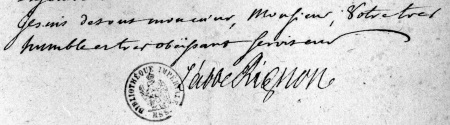 Je suis de tout mon cœur, Monsieur, Votre tres
humble et tres obeissant Serviteur
L'abbé Rignon
BIBLIOTHÈQUE IMPÉRIALE MSS.